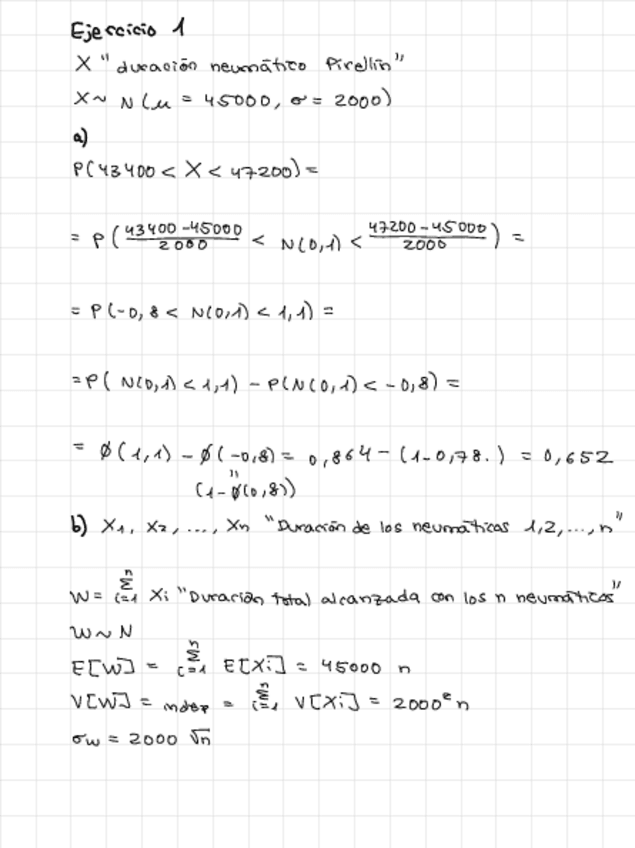 Ejercicio 1
X "duración neumático Pirellin"
X ~ N(μ = 45000, σ = 2000)
a)
P(43400 < X < 47200) =
= P( (43400 - 45000)/2000 < N(0,1) < (47200 - 45000)/2000 ) =
= P(-0,8 < N(0,1) < 1,1) =
= P( N(0,1) < 1,1) - P(N(0,1) < -0,8) =
= ϕ(1,1) - ϕ(-0,8) = 0,864 - (1-0,78.) = 0,652
"
(1-ϕ(0,8))
b) X₁, X₂, ..., Xn "Duración de los neumáticas 1,2,...,n"
W = Σⁿᵢ₌₁ Xi "Duración total alcanzada con los n neumáticos"
W ~ N
E[W] = Σⁿᵢ₌₁ E[Xi] = 45000 n
V[W] = indep = Σⁿᵢ₌₁ V[Xi] = 2000² n
σw = 2000 √n